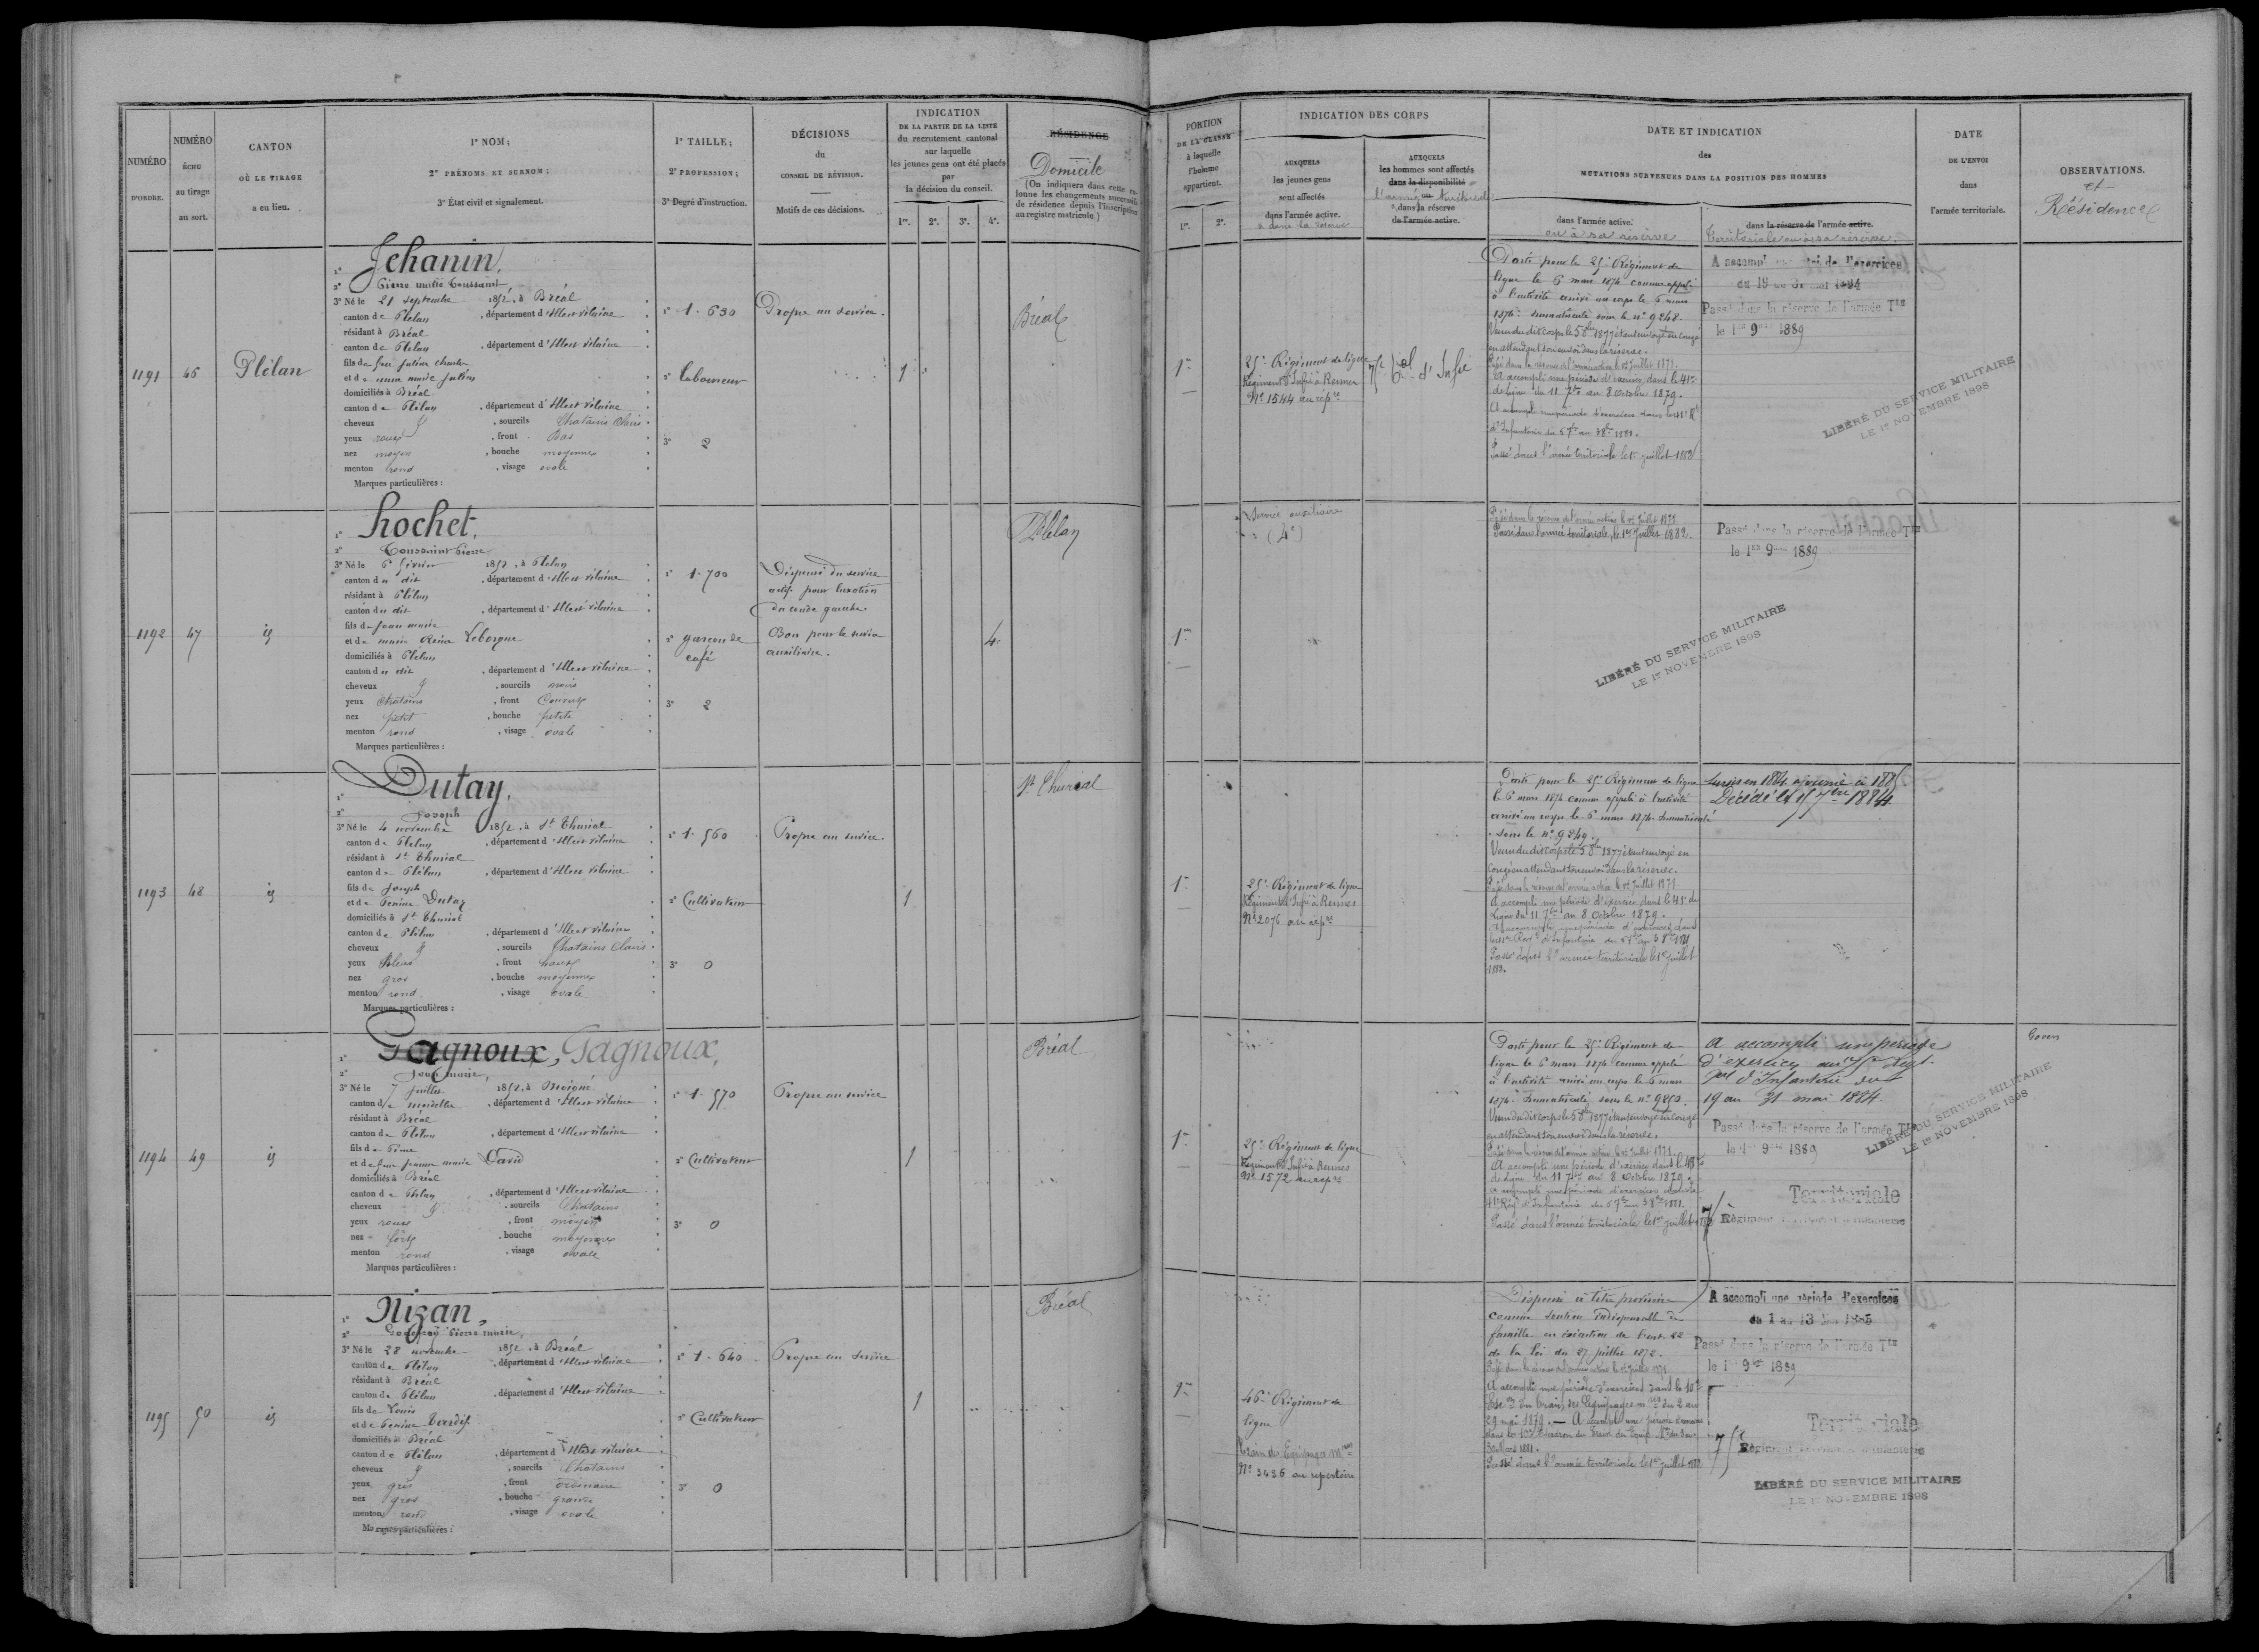 NUMÉRO
D'ORDRE.
NUMÉRO
ÉCHU
au tirage
au sort.
CANTON
OÙ LE TIRAGE
a eu lieu.
1º NOM;
2º PRÉNOMS ET SURNOM;
3º État civil et signalement.
1º TAILLE;
2º PROFESSION;
3º Degré d'instruction.
DÉCISIONS
du
CONSEIL DE RÉVISION.
Motifs de ces décisions.
INDICATION
DE LA PARTIE DE LA LISTE
du recrutement cantonal
sur laquelle
les jeunes gens ont été placés
par
la décision du conseil.
1re. 2e. 3e. 4e.
RÉSIDENCE
Domicile
(On indiquera dans cette co-
lonne les changements successifs
de résidence depuis l'inscription
au registre matricule.)
1191
46
Plélan
1º Jehanin,
2º Pierre Marie Toussaint
3º Né le 21 septembre 1852, à Bréal
canton de Plélan, département d'Ille et Vilaine
résidant à Bréal
canton de Plélan, département d'Ille et Vilaine
fils de feu Julien
et de
domiciliés à Bréal
canton de Plélan, département d'Ille et Vilaine
cheveux, sourcils Chatains Clairs
yeux roux, front Bas
nez moyen, bouche moyenne
menton rond, visage ovale
Marques particulières :
1º 1.630
2º Laboureur
3º 2
Propre au service.
1
Bréal
1192
47
id
1º Lochet,
2º Toussaint Pierre
3º Né le 6 février 1852, à Plélan
canton du dit, département d'Ille et Vilaine
résidant à Plélan
canton du dit, département d'Ille et Vilaine
fils de Jean Marie
et de Marie Reine Leborgne
domiciliés à Plélan
canton du dit, département d'Ille et Vilaine
cheveux, sourcils noirs
yeux Chatains, front
nez petit, bouche petite
menton rond, visage ovale
Marques particulières :
1º 1.700
2º garçon de
café
3º 2
Dispensé du service
actif pour luxation
du coude gauche.
Bon pour le service
auxiliaire.
4
Plélan
1193
48
id
1º Dutay,
2º Joseph
3º Né le 4 novembre 1852, à St Thurial
canton de Plélan, département d'Ille et Vilaine
résidant à St Thurial
canton de Plélan, département d'Ille et Vilaine
fils de Joseph
et de Perrine Dutay
domiciliés à St Thurial
canton de Plélan, département d'Ille et Vilaine
cheveux, sourcils Chatains Clairs
yeux Bleus, front haut
nez gros, bouche moyenne
menton rond, visage ovale
Marques particulières :
1º 1.560
2º Cultivateur
3º 0
Propre au service.
1
St Thurial
1194
49
id
1º Gagnoux,
2º Jean Marie,
3º Né le 7 juillet 1852, à Moigné
canton de Mordelles, département d'Ille et Vilaine
résidant à Bréal
canton de Plélan, département d'Ille et Vilaine
fils de
et de feue Jeanne Marie David
domiciliés à Bréal
canton de Plélan, département d'Ille et Vilaine
cheveux, sourcils Chatains
yeux roux, front moyen
nez fort, bouche moyenne
menton rond, visage ovale
Marques particulières :
1º 1.570
2º Cultivateur
3º 0
Propre au service
1
Bréal
1195
50
id
1º Nizan,
2º Godefroy Pierre Marie,
3º Né le 28 novembre 1852, à Bréal
canton de Plélan, département d'Ille et Vilaine
résidant à Bréal
canton de Plélan, département d'Ille et Vilaine
fils de Louis
et de Perrine Tardif
domiciliés à Bréal
canton de Plélan, département d'Ille et Vilaine
cheveux, sourcils Chatains
yeux gris, front ordinaire
nez gros, bouche grande
menton rond, visage ovale
Marques particulières :
1º 1.640
2º Cultivateur
3º 0
Propre au service
1
Bréal
PORTION
DE LA CLASSE
à laquelle
l'homme
appartient.
1re. 2e.
INDICATION DES CORPS
AUXQUELS
les jeunes gens
sont affectés
dans l'armée active.
o dans la réserve
AUXQUELS
les hommes sont affectés
dans la disponibilité
l'armée territoriale
ou
dans la réserve
de l'armée active.
DATE ET INDICATION
des
MUTATIONS SURVENUES DANS LA POSITION DES HOMMES
dans l'armée active.
ou à sa réserve
dans la réserve de l'armée active.
Territoriale ou à sa réserve.
DATE
DE L'ENVOI
dans
l'armée territoriale.
OBSERVATIONS.
et
Résidence
1re
25e Régiment de ligne
Régiment d'Infie à Rennes
Nº 1544 au rép.re
75e Rt d'Infie
Parti pour le 25e Régiment de
ligne le 6 mars 1874 comme appelé
à l'activité arrivé au corps le 6 mars
1874. Immatriculé sous le nº 9248.
Venu du dit corps le 5 8bre 1877 étant envoyé en congé
en attendant son envoi dans la réserve.
A accompli une période d'exercices dans le 41e
de ligne du 11 7bre au 8 octobre 1879.
A accompli une période d'exercices dans le 41e Rt
d'Infanterie du 6 7bre au 3 8bre 1881.
Passé dans l'armée territoriale le 1er juillet 1882
Passé dans la réserve de l'armée Tle
le 1er 9bre 1889
LIBÉRÉ DU SERVICE MILITAIRE
LE 1er NOVEMBRE 1898
1re
Service auxiliaire
(4e)
Passé dans l'armée territoriale, le 1er Juillet 1882.
Passé dans la réserve de l'armée Tle
le 1er 9bre 1889
LIBÉRÉ DU SERVICE MILITAIRE
LE 1er NOVEMBRE 1898
1re
25e Régiment de ligne
Régiment d'Infie à Rennes
Nº 2076 au rép.re
Parti pour le 25e Régiment de ligne
le 6 mars 1874 comme appelé à l'activité
arrivé au corps le 6 mars 1874. Immatriculé
sous le nº 9249.
Venu du dit corps le 5 8bre 1877 étant envoyé en
congé en attendant son envoi dans la réserve.
A accompli une période d'exercices dans le 41e de
ligne du 11 7bre au 8 octobre 1879.
Passé dans l'armée territoriale le 1er juillet
1882.
Sursis en 1884 ajourné à 1885
Décédé le 7bre 1884
1re
25e Régiment de ligne
Régiment d'Infie à Rennes
Nº 1572 au rép.re
Parti pour le 25e Régiment de
ligne le 6 mars 1874 comme appelé
à l'activité arrivé au corps le 6 mars
1874. Immatriculé sous le nº 9250.
Venu du dit corps le 5 8bre 1877 étant envoyé en congé
en attendant son envoi dans la réserve.
A accompli une période d'exercices dans le 41e
de ligne du 11 7bre au 8 octobre 1879.
Passé dans l'armée territoriale le 1er juillet
A accompli une période
d'exercices au 75e Régt
Tal d'Infanterie du
19 au 31 mai 1884.
Passé dans la réserve de l'armée Tle
le 1er 9bre 1889
LIBÉRÉ DU SERVICE MILITAIRE
LE 1er NOVEMBRE 1898
Territoriale
75e Régiment territorial d'infanterie
Goven
1re
46e Régiment de
ligne
Train des Equipages Mres
Nº 3436 au répertoire
Dispensé à titre provisoire
comme soutien indispensable de
famille en exécution de l'art. 22
de la loi du 27 juillet 1872.
Passé dans l'armée territoriale le 1er juillet 1882
A accompli une période d'exercices
du 1 au 13 1885
Passé dans la réserve de l'armée Tle
le 1er 9bre 1889
Territoriale
75e Régiment territorial d'infanterie
LIBÉRÉ DU SERVICE MILITAIRE
LE 1er NOVEMBRE 1898